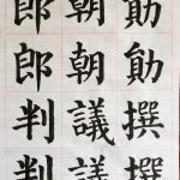 勛勛撰撰
朝朝議議
郎郎判判